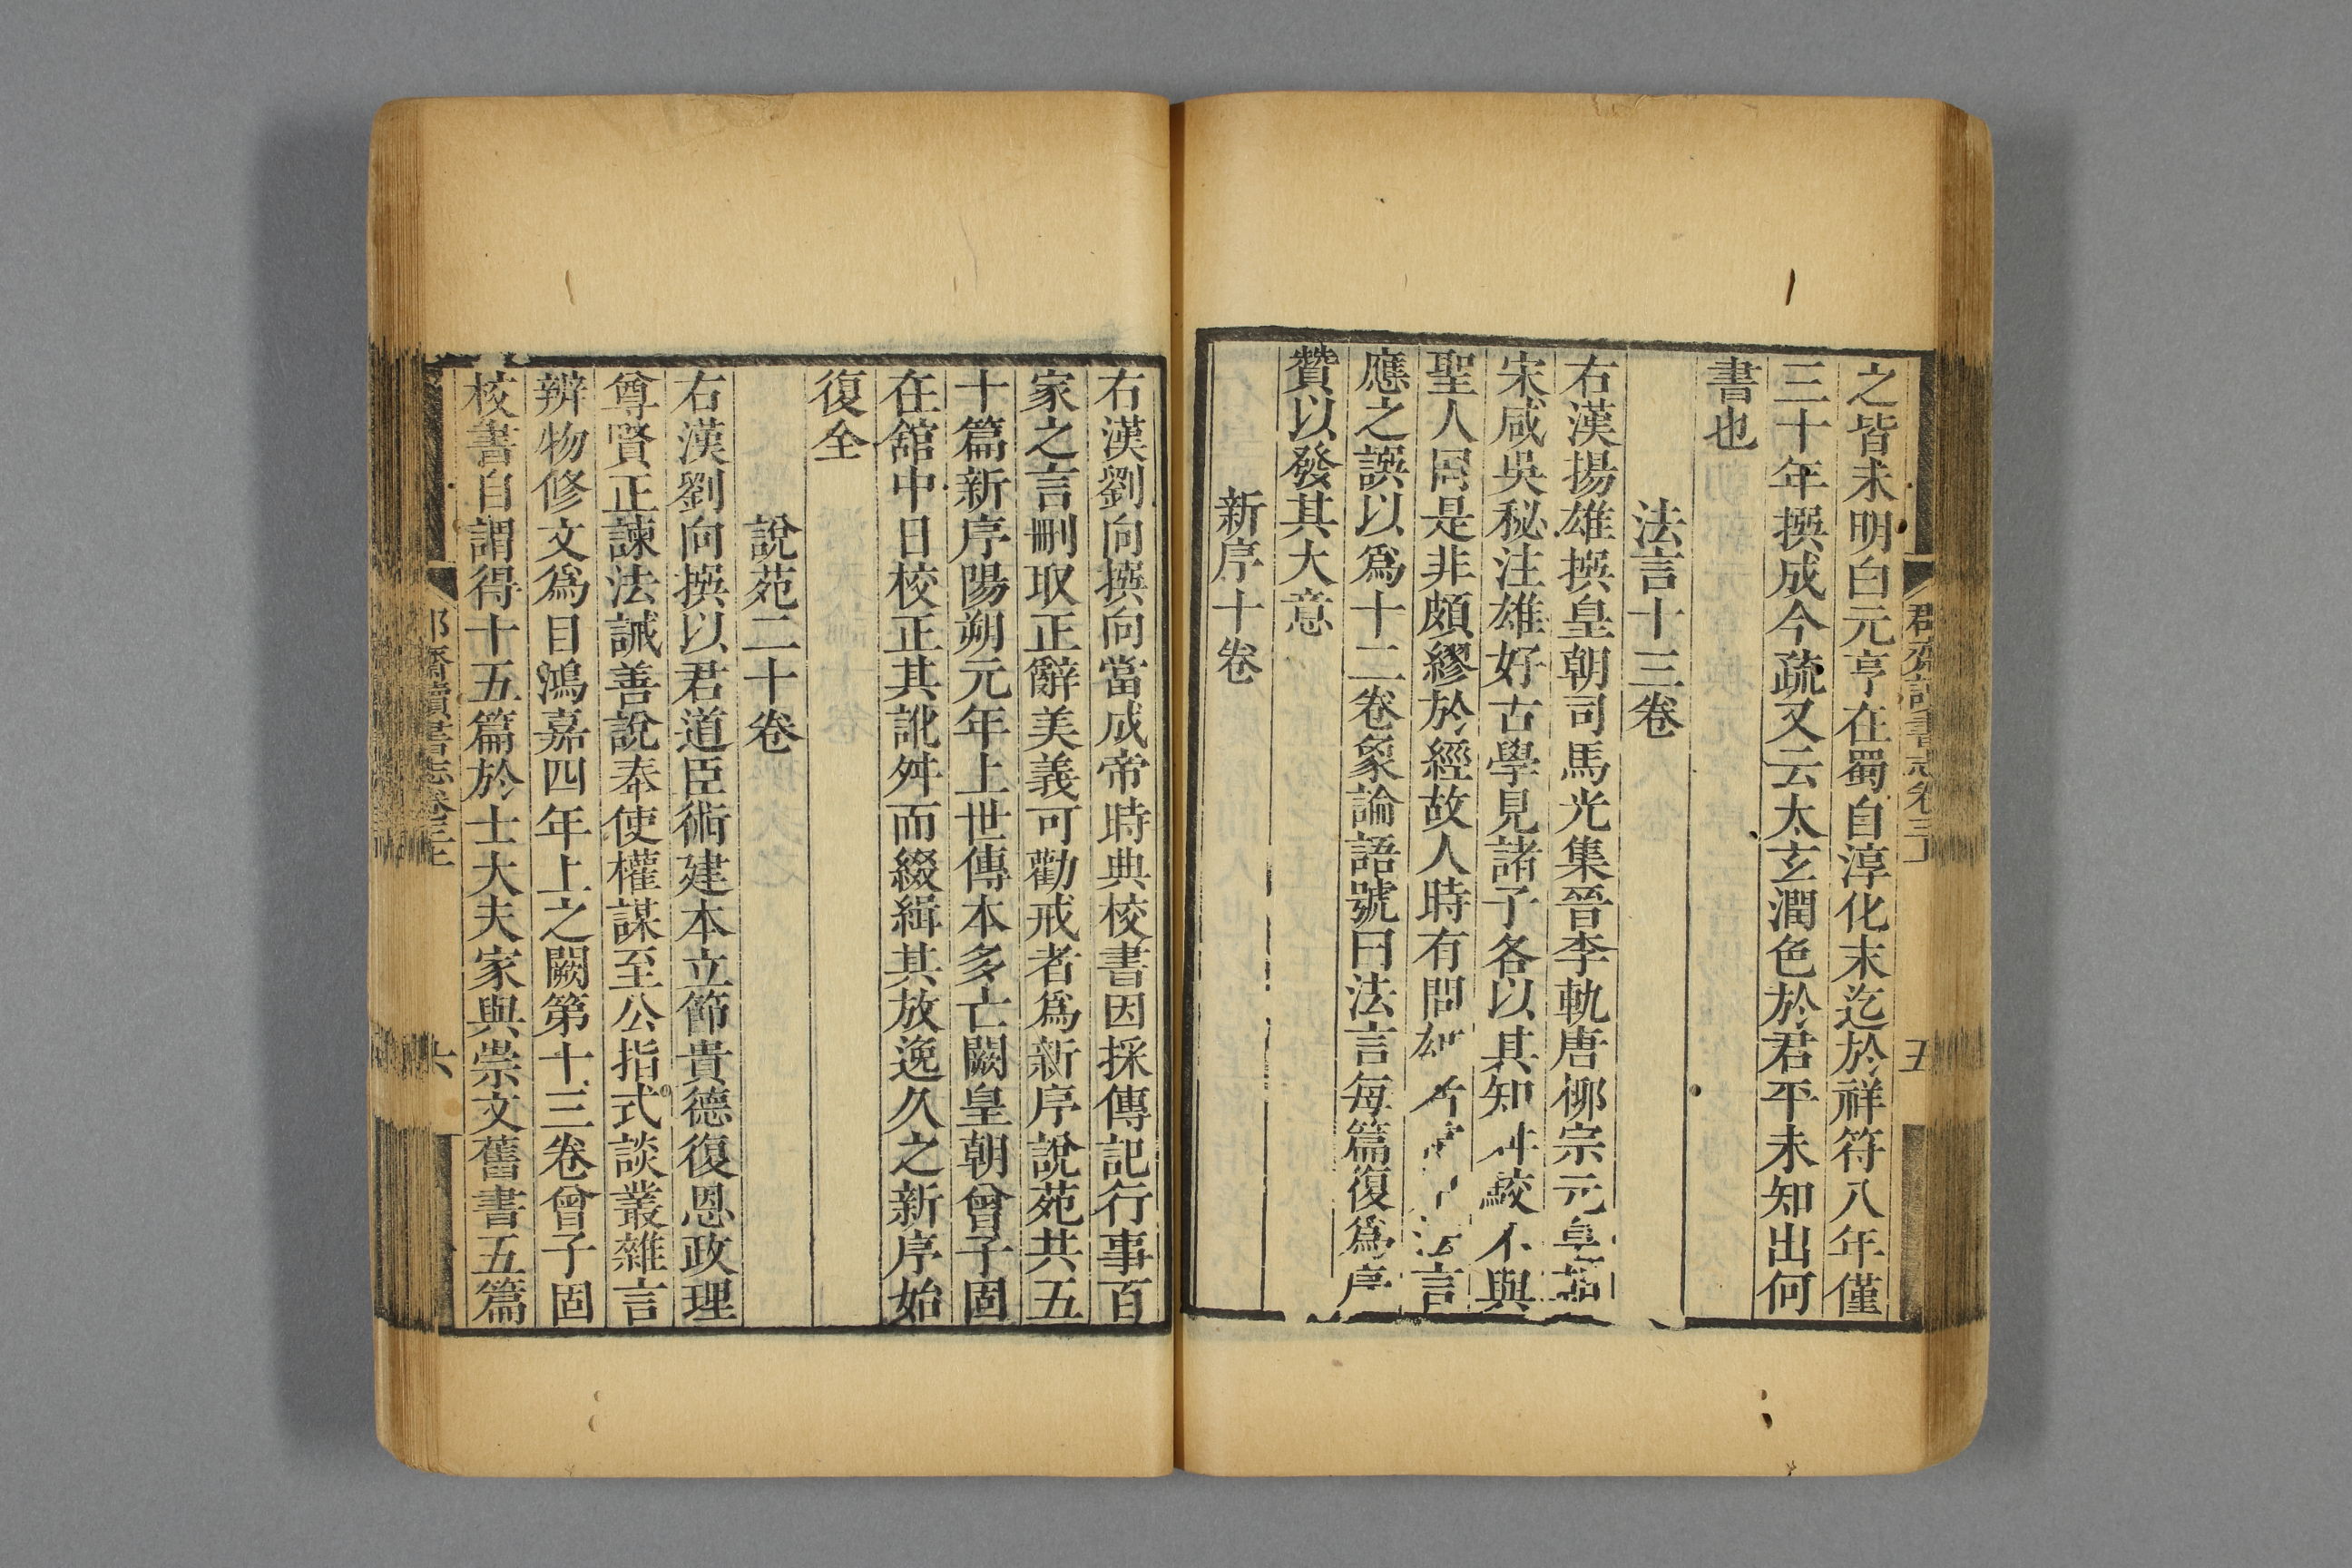 之皆未明白元亨在蜀自淳化末迄於祥符八年僅
三十年撰成今疏又云太玄潤色於君平未知出何
書也
法言十三卷
右漢揚雄撰皇朝司馬光集晉李軌唐柳宗元
宋咸吳秘注雄好古學見諸子各以其知舛 不與
聖人同是非頗繆於經故人時有問雄 法言
應之譔以爲十二卷象論語號曰法言每篇復爲序
贊以發其大意
新序十卷
五
右漢劉向撰向當成帝時典校書因採傳記行事百
家之言刪取正辭美義可勸戒者爲新序說苑共五
十篇新序陽朔元年上世傳本多亡闕皇朝曾子固
在舘中日校正其訛舛而綴緝其放逸久之新序始
復全
說苑二十卷
右漢劉向撰以君道臣術建本立節貴德復恩政理
尊賢正諫法誡善說奉使權謀至公指武談叢雜言
辨物修文爲目鴻嘉四年上之闕第十三卷曾子固
校書自謂得十五篇於士大夫家與崇文舊書五篇
六